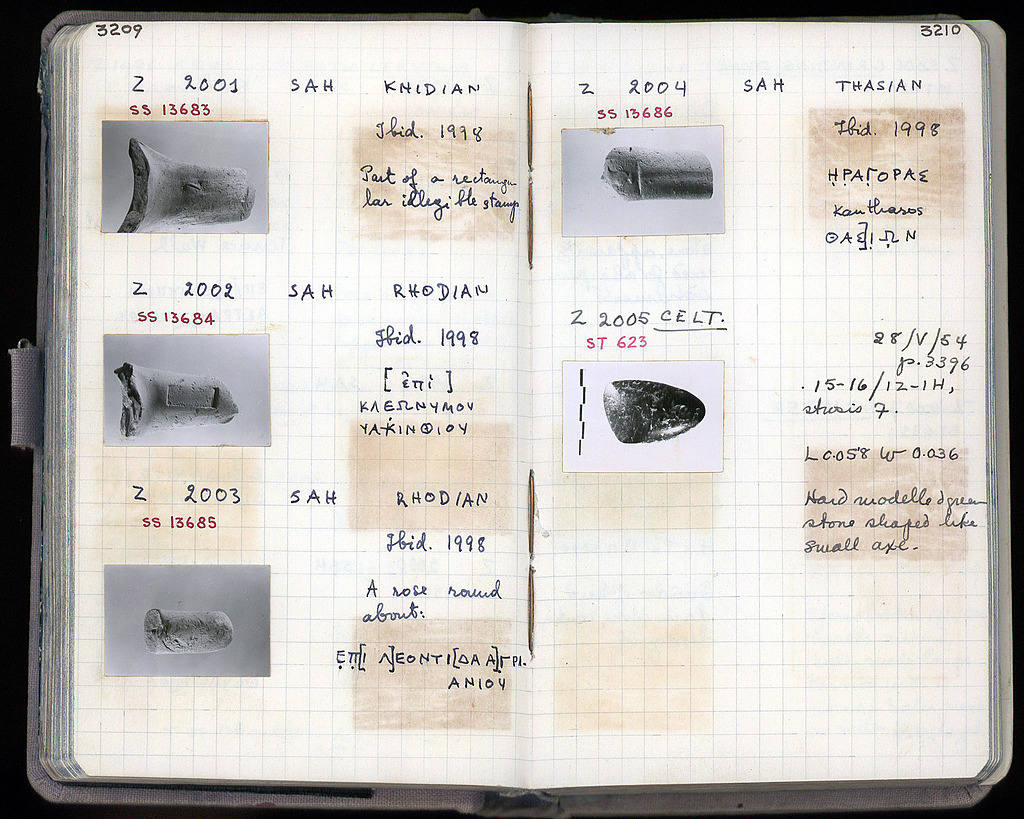 3209
Z 2001 SAH KNIDIAN
SS 13683
Ibid. 1998
Part of a rectangu-
lar illegible stamp
Z 2002 SAH RHODIAN
SS 13684
Ibid. 1998
[ἐπὶ]
ΚΛΕΩΝΥΜΟΥ
ΥΑΚΙΝΘΙΟΥ
Z 2003 SAH RHODIAN
SS 13685
Ibid. 1998
A rose round
about:
Ε̣Π̣[Ι Λ]ΕΟΝΤΙ[ΔΑ Α]ΓΡΙ.
ΑΝΙΟΥ
3210
Z 2004 SAH THASIAN
SS 13686
Ibid. 1998
Η̣Ρ̣ΑΓΟΡΑΣ
Kantharos
ΘΑΣ]Ι̣Ω̣Ν
Z 2005 CELT.
ST 623
28/V/54
p. 3396
15-16/IZ-IH,
stasis 7.
L 0.058 W 0.036
Hard modelled green
stone shaped like
small axe.